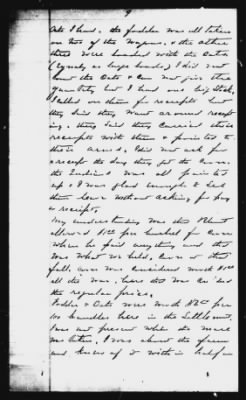 Oats I had. the fodder was all taken
on two of the Wagons. & the other
three were loaded with the Oats
I did not
know the Oats & Corn nor just the
quantity but I had one big Stack,
I called on them for receipts but
they said they want around receipt
ing. they said they carried their
receipts with them & pointed to
their arms. I did not ask for
a receipt the day they got the Corn.
the Indians was all painted
up & I was glad enough to see
them leave without asking for pay
or receipt.
My understanding was the
allowed per hundred for Corn
when he paid everything and that
was what we sold, Corn that
fall, corn was considered worth
all that was, here that was
the regular price.
Fodder & Oats was worth per
100 bundles here in the Settlement.
I was not present when the mare
was taken, I was about the farm
and knew of it within half an